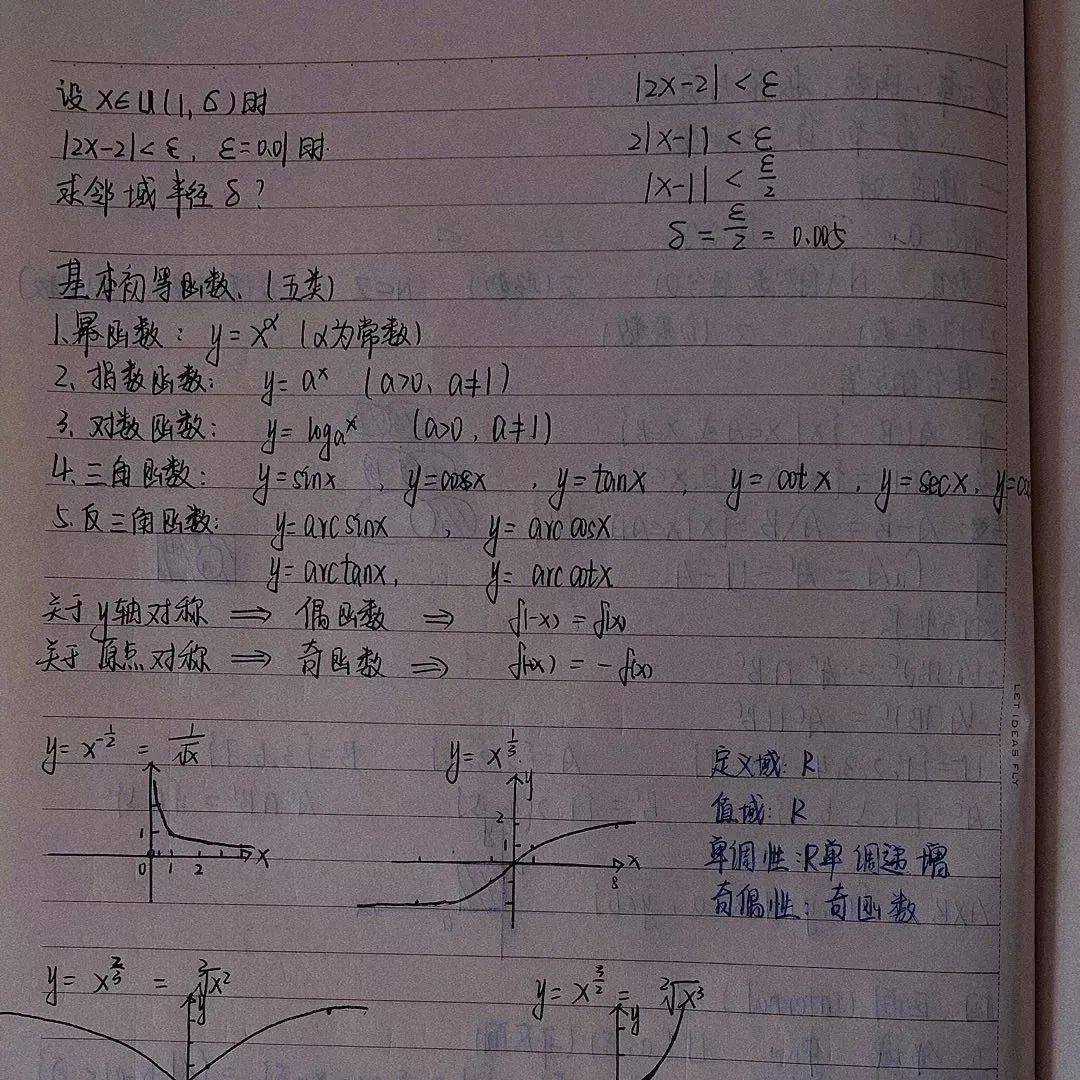 设 x∈U(1,δ)时
|2x-2|<ε, ε=0.01时
求邻域半径 δ?
|2x-2| < ε
2|x-1| < ε
|x-1| < ε/2
δ = ε/2 = 0.005
基本初等函数、(五类)
1.幂函数: y=x^α (α为常数)
2、指数函数: y=a^x (a>0、a≠1)
3、对数函数: y=log_a^x (a>0、a≠1)
4、三角函数: y=sinx, y=cosx, y=tanx, y=cotx, y=secx,
5.反三角函数: y=arcsinx, y=arccosx
y=arctanx, y=arccotx
关于y轴对称 ⇒ 偶函数 ⇒ f(-x)=f(x)
关于原点对称 ⇒ 奇函数 ⇒ f(-x)=-f(x)
y=x^(-1/2) = 1/√x
1
0 1 2 x
y=x^(1/3)
y
2
1
8 x
定义域: R
值域: R
单调性: R单调递增
奇偶性: 奇函数
y=x^(2/3) = ³√x²
y
y=x^(3/2) = ²√x³
y
LET IDEAS FLY